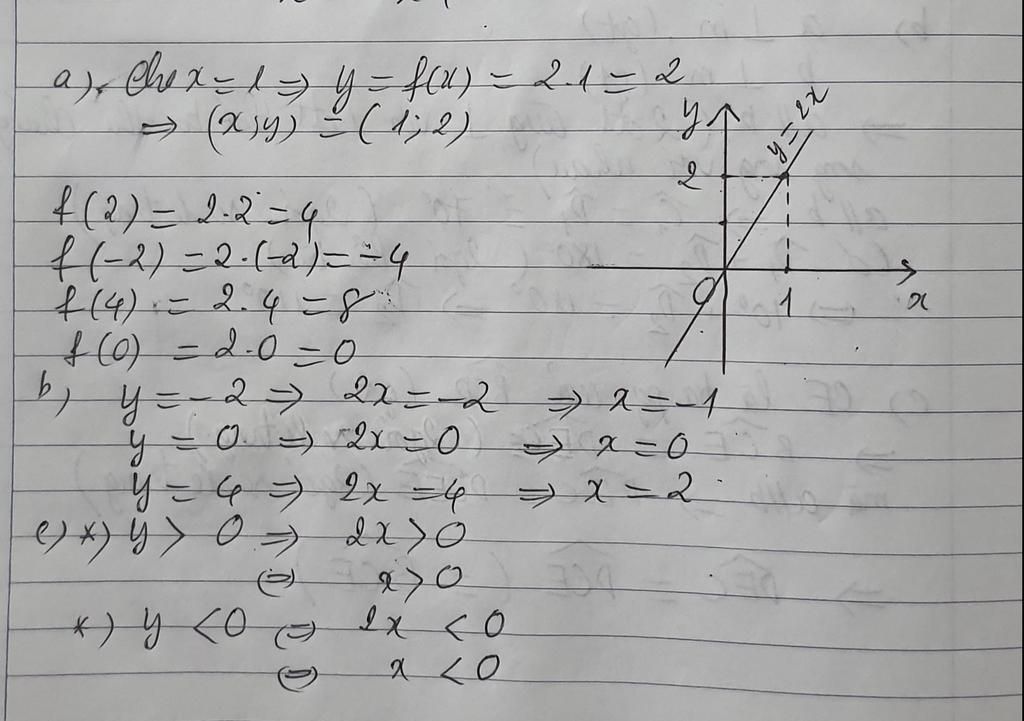 a), Cho x = 1 => y = f(x) = 2.1 = 2
=> (x;y) = (1; 2)
f(2) = 2.2 = 4
f(-2) = 2.(-2) = -4
f(4) = 2.4 = 8
f(0) = 2.0 = 0
y
y = 2x
2
O
1
x
b) y = -2 => 2x = -2 => x = -1
y = 0 => 2x = 0 => x = 0
y = 4 => 2x = 4 => x = 2
c) *) y > 0 => 2x > 0
<=> x > 0
*) y < 0 <=> 2x < 0
<=> x < 0